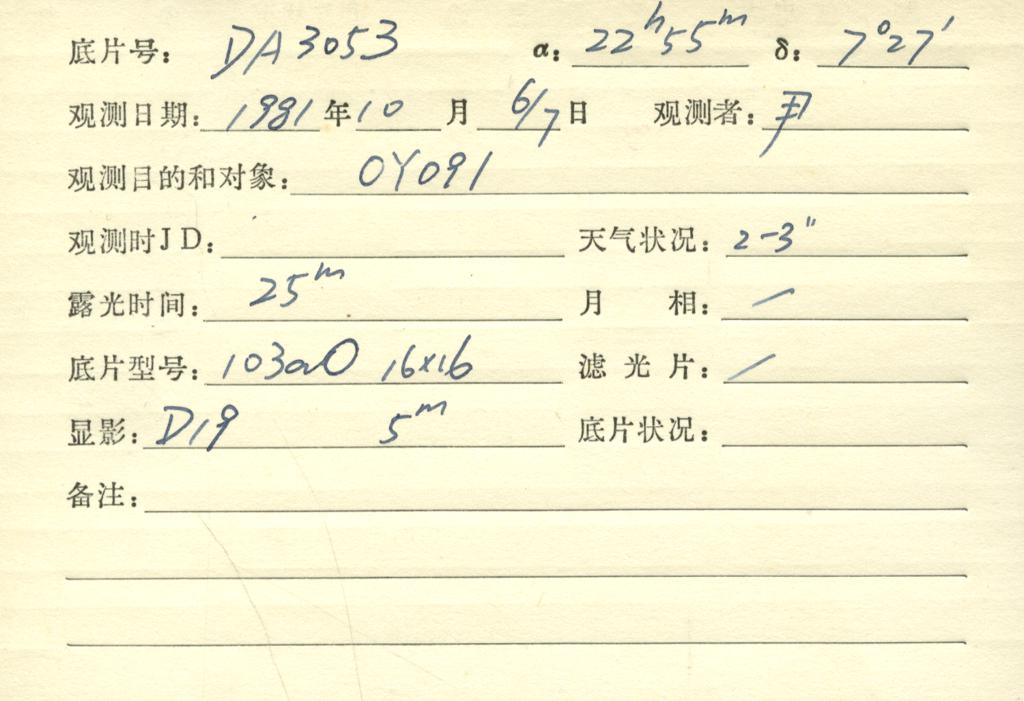 底片号: DA3053 α: 22ʰ55ᵐ δ: 7°27′
观测日期: 1981年10月6/7日 观测者: 尹
观测目的和对象: OY091
观测时JD: 天气状况: 2-3"
露光时间: 25ᵐ 月 相: /
底片型号: 103aO 16×16 滤光片: /
显影: D19 5ᵐ 底片状况:
备注: